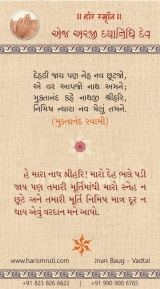 ॥ હરિ સ્મૃતિ ॥
એજ અરજી દયાનિધિ દેવ
દેહડી જાય પણ નેહ નવ છૂટજો,
એ વર આપજો નાથ અમને;
મુક્તાનંદ કહે નાથજી શ્રીહરિ,
નિમિષ ન્યારા નવ મેલું તમને.
(મુક્તાનંદ સ્વામી)
હે મારા નાથ શ્રીહરિ! મારો દેહ ભલે પડી
જાય પણ તમારી મૂર્તિમાંથી મારો સ્નેહ ન
છૂટે અને તમારી મૂર્તિ નિમિષ માત્ર દૂર ન
થાય એવું વરદાન મને આપો.
www.harismruti.com
Jnan Baug - Vadtal
+91 823 826 6622
+91 990 900 6765